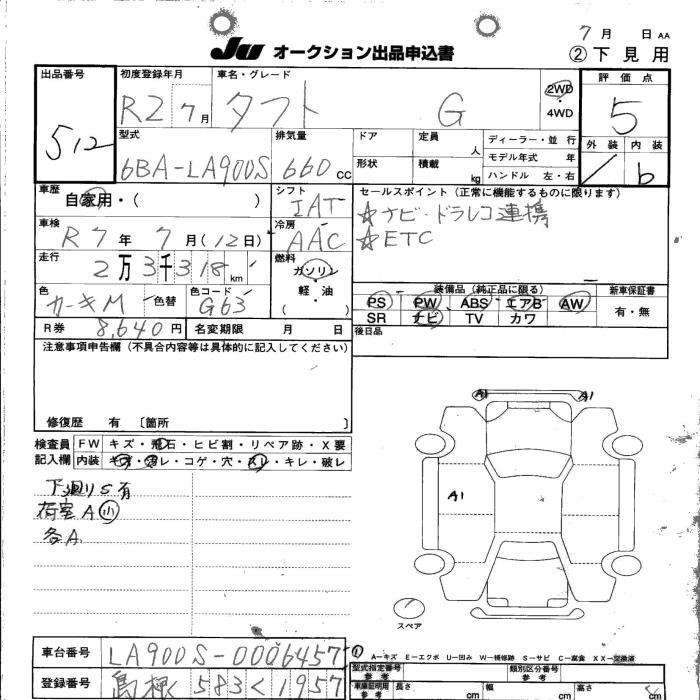 7 月 日 AA
② 下 見 用
JU オークション出品申込書
出品番号 512
初度登録年月 R2 7月
車名・グレード タフト G
2WD・4WD
評価点 5
外装 内装 b
型式 6BA-LA900S
排気量 660 CC
ドア
形状
定員 人
積載 kg
ディーラー・並行
モデル年式 年
ハンドル 左・右
車歴 自家用・( )
シフト IAT
セールスポイント(正常に機能するものに限ります)
☆ナビ・ドラレコ連携
☆ETC
車検 R7年 7月(12日)
冷房 AAC
走行 2万3千318km
燃料 ガソリン・軽・油
色 カーキM 色替
色コード G63
装備品(純正品に限る)
PS PW ABS エアB AW
SR ナビ TV カワ
新車保証書 有・無
R券 8,640円
名変期限 月 日
後日品
注意事項申告欄(不具合内容等は具体的に記入してください)
修復歴 有 〔箇所 〕
検査員記入欄
FW キズ・飛石・ヒビ割・リペア跡・X要
内装 キズ・汚レ・コゲ・穴・スレ・キレ・破レ
下廻りS有
荷室A小
各A
A1 A1
A1
スペア
車台番号 LA900S-0006457
登録番号 島根 583く1957
A-キズ E-エクボ U-凹み W-補修跡 S-サビ C-腐食 XX-交換済
型式指定番号 参考
類別区分番号 参考
車庫証明用 参考 長さ cm 幅 cm 高さ cm